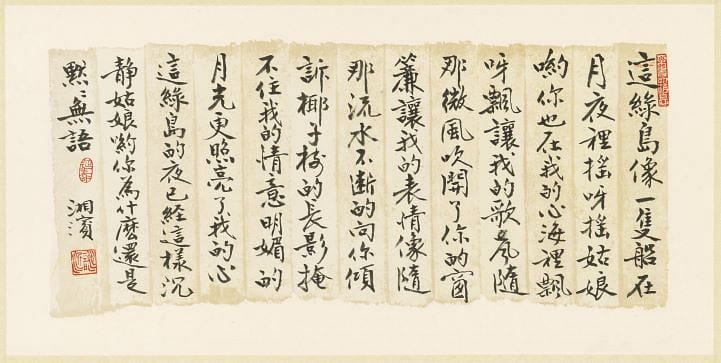 這綠島像一隻船在
月夜裡搖呀搖姑娘
喲你也在我的心海裡飄
呀飄讓我的歌声隨
那微風吹開了你的窗
簾讓我的衷情像隨
那流水不斷的向你傾
訴椰子树的長影掩
不住我的情意明媚的
月光更照亮了我的心
這綠島的夜已經這樣沉
靜姑娘喲你為什麼還是
默々無語
湘濱